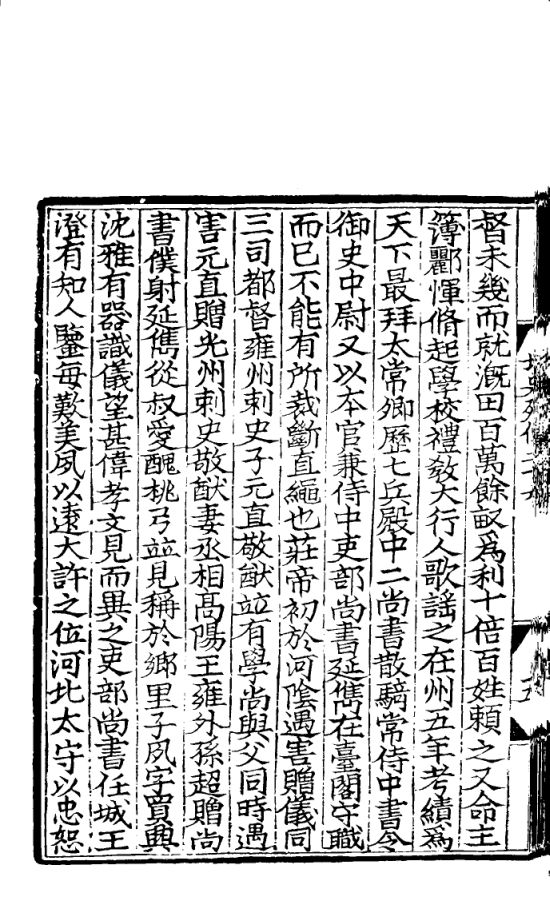 督未幾而就漑田百萬餘畝爲利十倍百姓頼之又命主
簿酈惲脩起學校禮教大行人歌謡之在州五年考績爲
天下最拜太常卿歷七兵殿中二尚書散騎常侍中書令
御史中尉又以本官兼侍中吏部尚書延儁在臺閣守職
而已不能有所裁斷直繩也莊帝初於河陰遇害贈儀同
三司都督雍州刺史子元直敬猷竝有學尚與父同時遇
害元直贈光州刺史敬猷妻丞相高陽王雍外孫超贈尚
書僕射延儁從叔愛醜桃弓竝見稱於鄉里子夙字買興
沈雅有器識儀望甚偉孝文見而異之吏部尚書任城王
澄有知人鑒每歎美夙以遠大許之位河北太守以忠恕